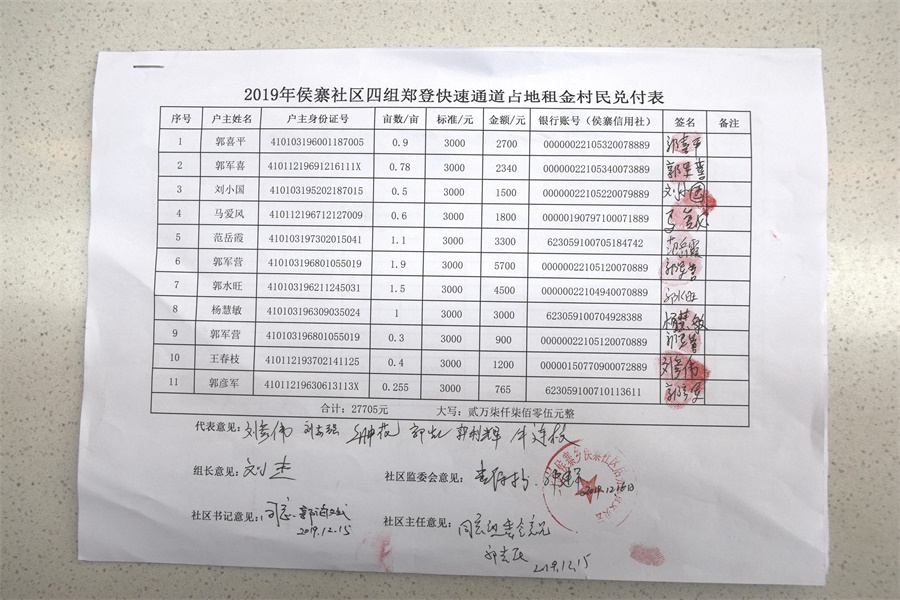 2019年侯寨社区四组郑登快速通道占地租金村民兑付表
序号 户主姓名 户主身份证号 亩数/亩 标准/元 金额/元 银行账号（侯寨信用社） 签名 备注
1 郭喜平 410103196001187005 0.9 3000 2700 00000022105320078889 郭喜平
2 郭军喜 41011219691216111X 0.78 3000 2340 00000022105340073889 郭军喜
3 刘小国 410103195202187015 0.5 3000 1500 00000022105220079889 刘小国
4 马爱风 410112196712127009 0.6 3000 1800 00000190797100071889
5 范岳霞 410103197302015041 1.1 3000 3300 623059100705184742 范岳霞
6 郭军营 410103196801055019 1.9 3000 5700 00000022105120070889 郭军营
7 郭水旺 410103196211245031 1.5 3000 4500 00000022104940070889 郭水旺
8 杨慧敏 410103196309035024 1 3000 3000 623059100704928388 杨慧敏
9 郭军营 410103196801055019 0.3 3000 900 00000022105120070889 郭军营
10 王春枝 410112193702141125 0.4 3000 1200 00000150770900072889 刘彦伟
11 郭彦军 41011219630613113X 0.255 3000 765 623059100710113611 郭彦军
合计：27705元 大写：贰万柒仟柒佰零伍元整
代表意见： 刘彦伟
组长意见： 刘杰
社区监委会意见： 2019.12.15日
社区书记意见： 同意 2019.12.15
社区主任意见： 同意 2019.12.15